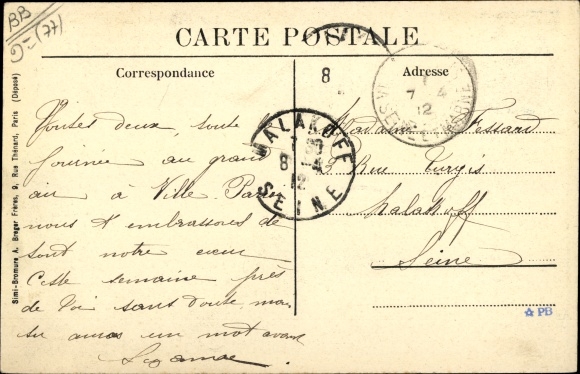 BB
(77)
CARTE POSTALE
Correspondance
8
Adresse
7 4
12
MALAKOFF
8
12
SEINE
Toutes deux, toute
journée au grand
air à Ville Parisis
nous t'embrassons de
tout notre cœur
Cette semaine près
de toi sans doute mais
tu auras un mot avant
Suzanne
Madame Tessard
9 Rue Turgis
Malakoff
Seine
Simi-Bromure A. Breger Frères, 9, Rue Thénard, Paris (Déposé)
PB